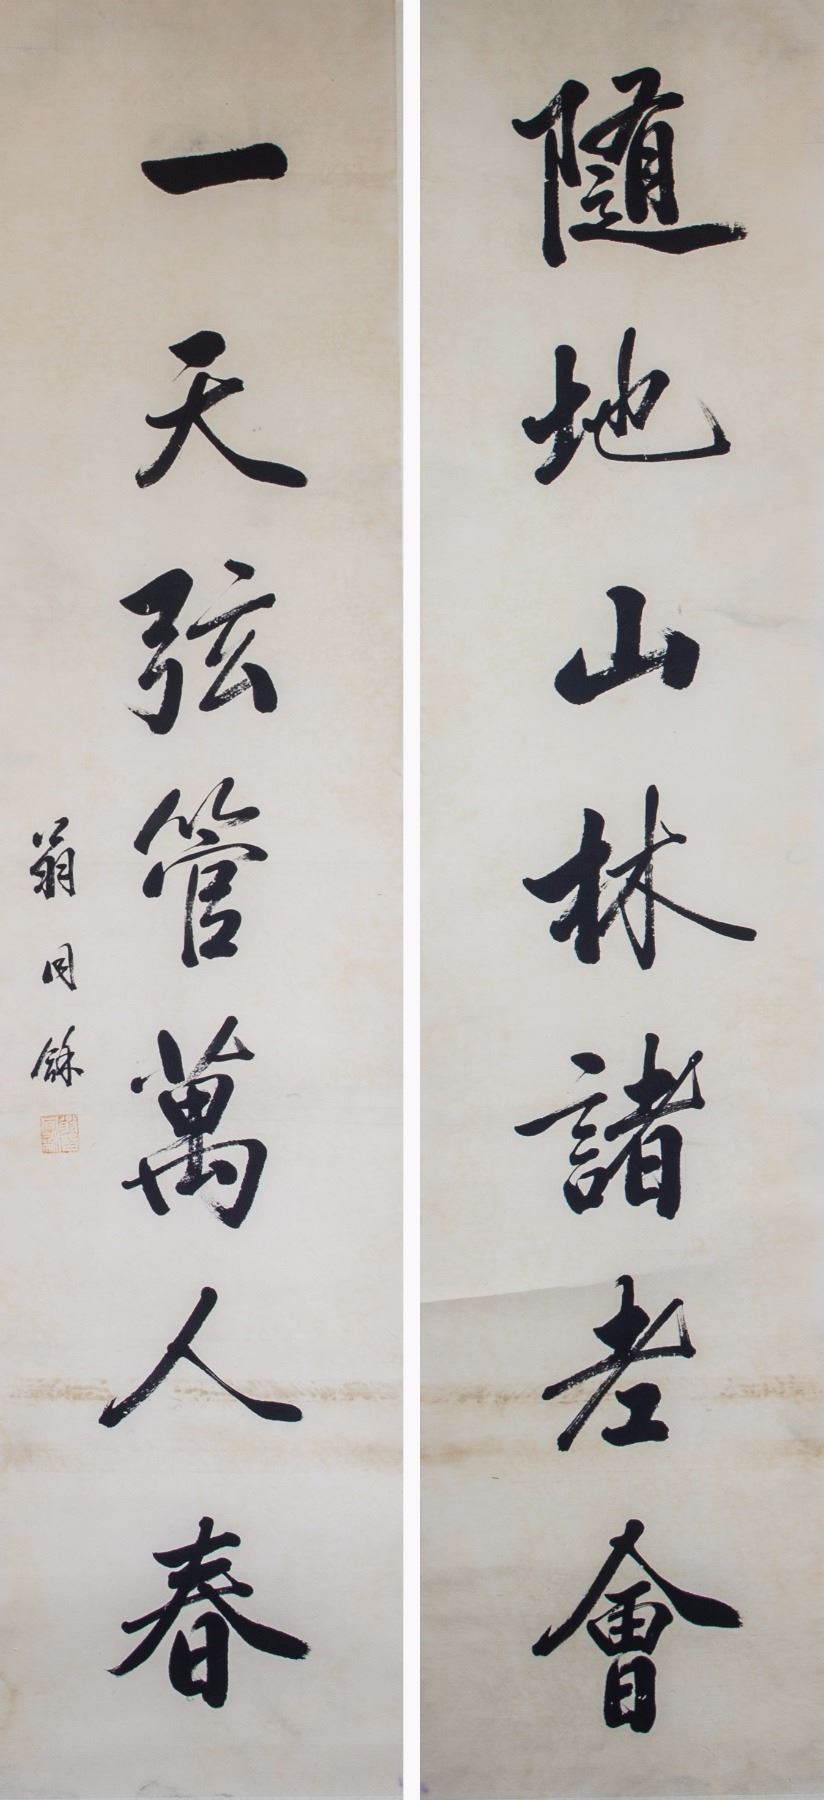 隨地山林諸老會
一天弦管萬人春
翁同龢